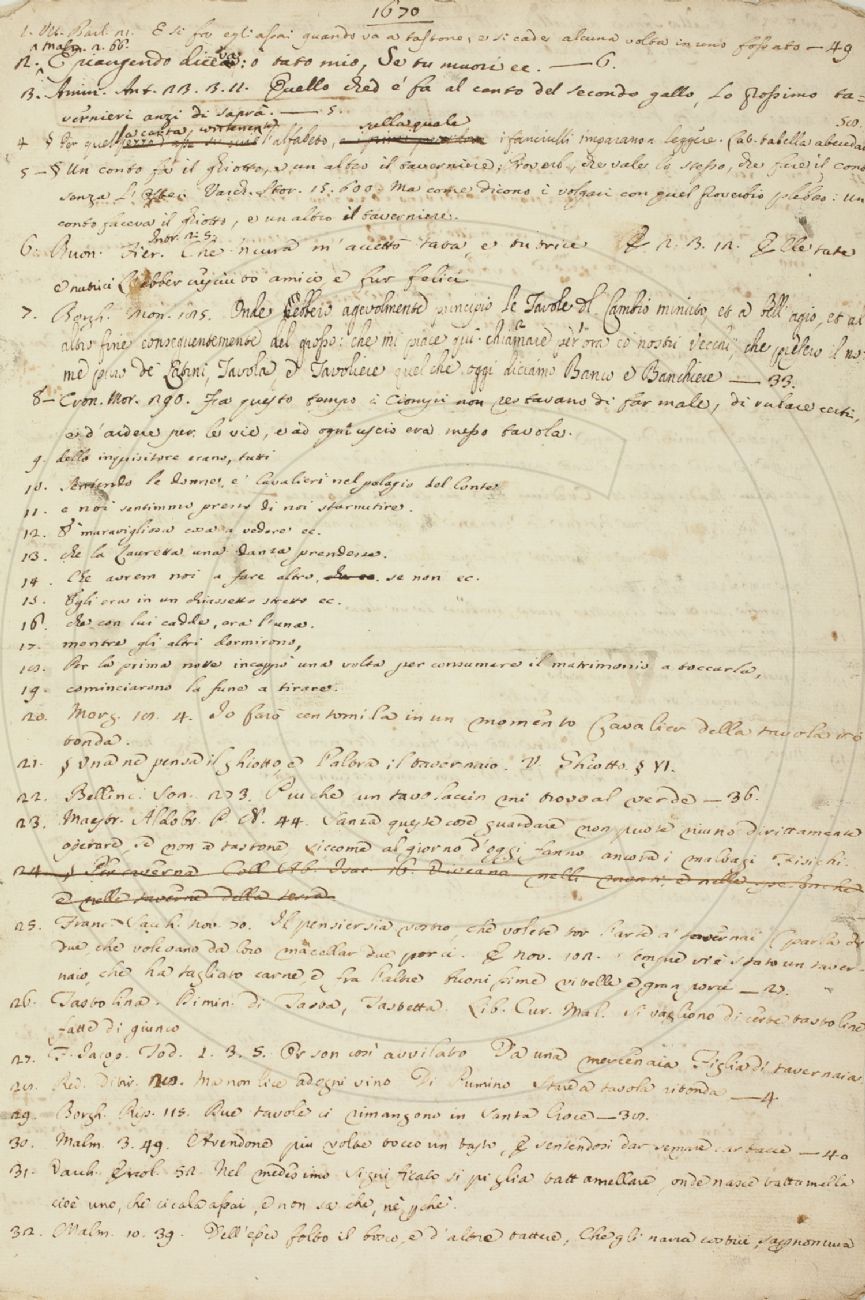 1670
1. Vit. Pitt. 21. E si fra egli assai quando va a tastone, e si cade alcuna volta in uno fossato — 49
^ Malm. 2. 66.
2. E piangendo diceva: o tato mio, Se tu muori ec. — 6.
3. Amm. Ant. 3. 11. Quello che è fa al canto del secondo gallo, Lo prossimo ta=
vernieri anzi il saprà. — 5.
la carta, contenente sulla quale
4 § Per quel l'alfabeto, i fanciulli imparano a leggere. Lat. tabella abecedar
5 — § Un conto fa il ghiotto, e un altro il taverniere; Proverb. che vale lo stesso, che fare il conto
senza l'oste. Varch. Stor. 15. 600. Ma come dicono i volgari con quel proverbio plebeo: Un
conto faceva il ghiotto, e un altro il taverniere.
6. Buon. Fier. Intr. 2. 5. Che 'n cura m'accettò tata, e nutrice E 2. 3. 12. E le tate
e nutrici amico, e fur felici
7. Borgh. Mon. 185. Onde agevolmente principio le Tavole del Cambio minuto, et a bell'agio, et al
altro fine conseguentemente del grosso: che mi piace qui chiamare per ora co' nostri vecchi, che presero il no-
me pure de' Latini, Tavola, e Tavoliere quel che oggi diciamo Banco e Banchiere — 33.
8 — Cron. Mor. 290. In questo tempo i Ciompi non restavano di far male, di rubare certi,
e d'ardere per le vie, e ad ogni uscio era messo tavola.
9. dello inquisitore erano, tutti
10. le donne, e' Cavalieri nel palagio del Conte
11. e noi sentimmo presso di noi starnutire.
12. E' maravigliosa cosa a vedere ec.
13. che la Lauretta una danza prendesse.
14. Che avrem noi a fare altro, se non ec.
15. Egli era in un chiassetto stretto ec.
16. che con lui cadde, era l'una.
17. mentre gli altri dormirono,
18. Per la prima notte incappò una volta per consumare il matrimonio a toccarla,
19. cominciarono la fune a tirare.
20. Morg. 18. 4. Io farò centomila in un momento Cavalier della tavola ri-
tonda.
21. § Una ne pensa il ghiotto, e l'altra il tavernaio. V. Ghiotto. § VI.
22. Bellinc. Son. 273. Più che un tavolaccin mi trovo al verde — 36.
23. Maestr. Aldobr. P. N. 44. Sanza queste cose guardare non puote niuno dirittamente
operare, se non a tastone, siccome al giorno d'oggi fanno ancora i malvagi Fisichi.
24. § Per taverna Coll. Ab. Isac. 16. Diceano nelli monti, e nelle spelonche
e nelle caverne della terra
25. Franc. Sacch. nov. 70. Il pensiersia vostro, che volete tor l'arte a' tavernai (parla di
due che volevano da loro macellar due porci. E nov. 102. empre vi è stato un taver-
naio, che ha tagliato carne, e fra l'altre buonissime vitelle e gran porci — 2.
26. Tastolina. Dimin. di Tasta, Tastetta. Lib. Cur. Mal. Si vagliono di certe tastoline
fatte di giunco
27. F. Jacop. Tod. 2. 3. 5. Per son così avvilato Da una mercenaia Figlia di tavernaia
28. Red. Ditir. Ma non lice ad ogni vino Di Pumino Stare a tavola ritonda — 4
29. Borgh. Rip. 115. Due tavole ci rimangono in Santa Croce — 38.
30. Malm. 3. 49. Avendone più volte tocco un tasto, E sentendosi dar sempre cartacce — 40
31. Varch. Ercol. 52. Nel medesimo significato si piglia tattamellare, onde nasce tattamella
cioè uno, che cicala assai, e non sa che, nè perchè.
32. Malm. 10. 39. Dell'esser folto il bosco, e d'altre tattere, Che gli narra costui,